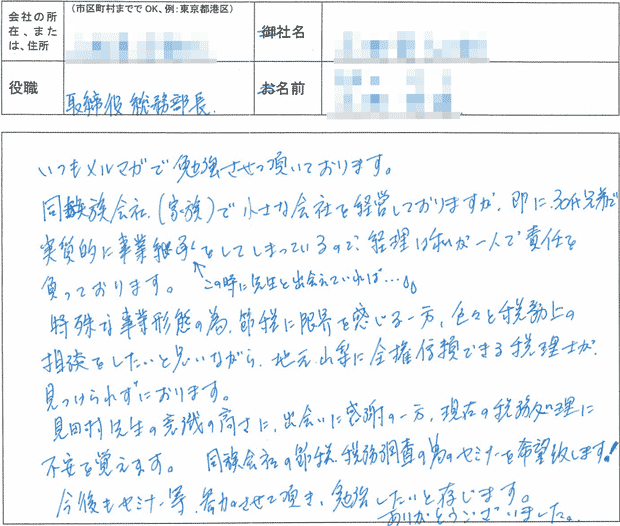 会社の所在、または、住所
（市区町村まででOK、例：東京都港区）
御社名
役職
取締役 総務部長.
お名前
いつもメルマガで勉強させて頂いております。
同族会社.（家族）で小さな会社を経営しておりますが、即に、30代兄弟で
実質的に事業継承をしてしまっているので、経理は私が一人で責任を
負っております。 この時に先生と出会えていれば…。
特殊な事業形態の為、節税に限界を感じる一方、色々と税務上の
相談をしたいと思いながら、地元山梨に全権信頼できる税理士が、
見つけられずにおります。
見田村先生の意識の高さに、出会いに感謝の一方、現在の税務処理に
不安を覚えます。 同族会社の節税、税務調査の為のセミナーを希望致します!
今後もセミナー等、参加させて頂き、勉強したいと存じます。
ありがとうございました。